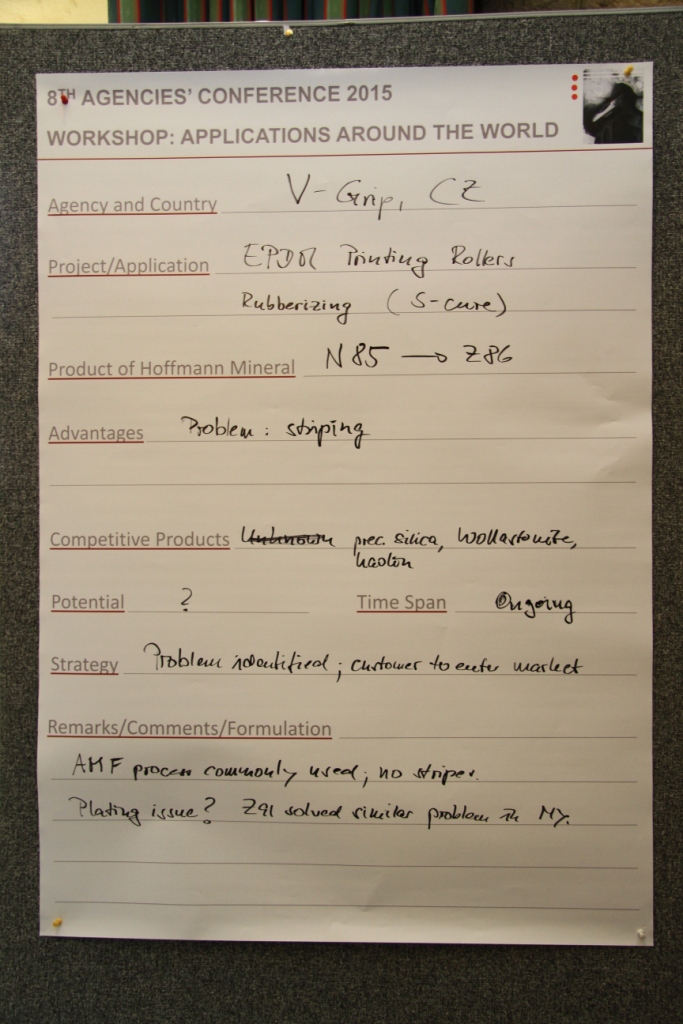 8TH AGENCIES' CONFERENCE 2015
WORKSHOP: APPLICATIONS AROUND THE WORLD
Agency and Country V-Grip, CZ
Project/Application EPDM Printing Rollers
Rubberizing (S-cure)
Product of Hoffmann Mineral N85 → Z86
Advantages Problem: striping
Competitive Products Unknown prec. silica, Wollastonite,
kaolin
Potential ? Time Span Ongoing
Strategy Problem indentified; customer to enter market
Remarks/Comments/Formulation
AMF process commonly used; no stripes.
Plating issue? Z91 solved similar problem in MY.